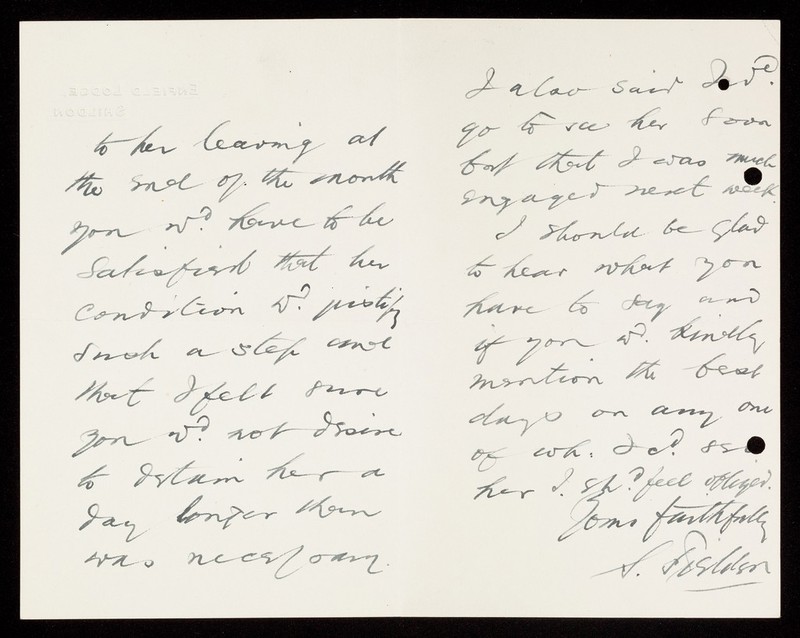 to her leaving at
the end of the month
you wd. have to be
satisfied that her
condition wd. justify
such a step and
that I felt sure
you wd. not desire
to detain her a
day longer than
was necessary.
I also said I wd.
go to see her soon
but that I was much
engaged next week.
I should be glad
to hear what you
have to say and
if you wd. kindly
mention the best
days on any one
of wh. I cd. see
her I shd. feel obliged.
Yours faithfully
S. Fielden
ENFIELD LODGE,
SHILDON